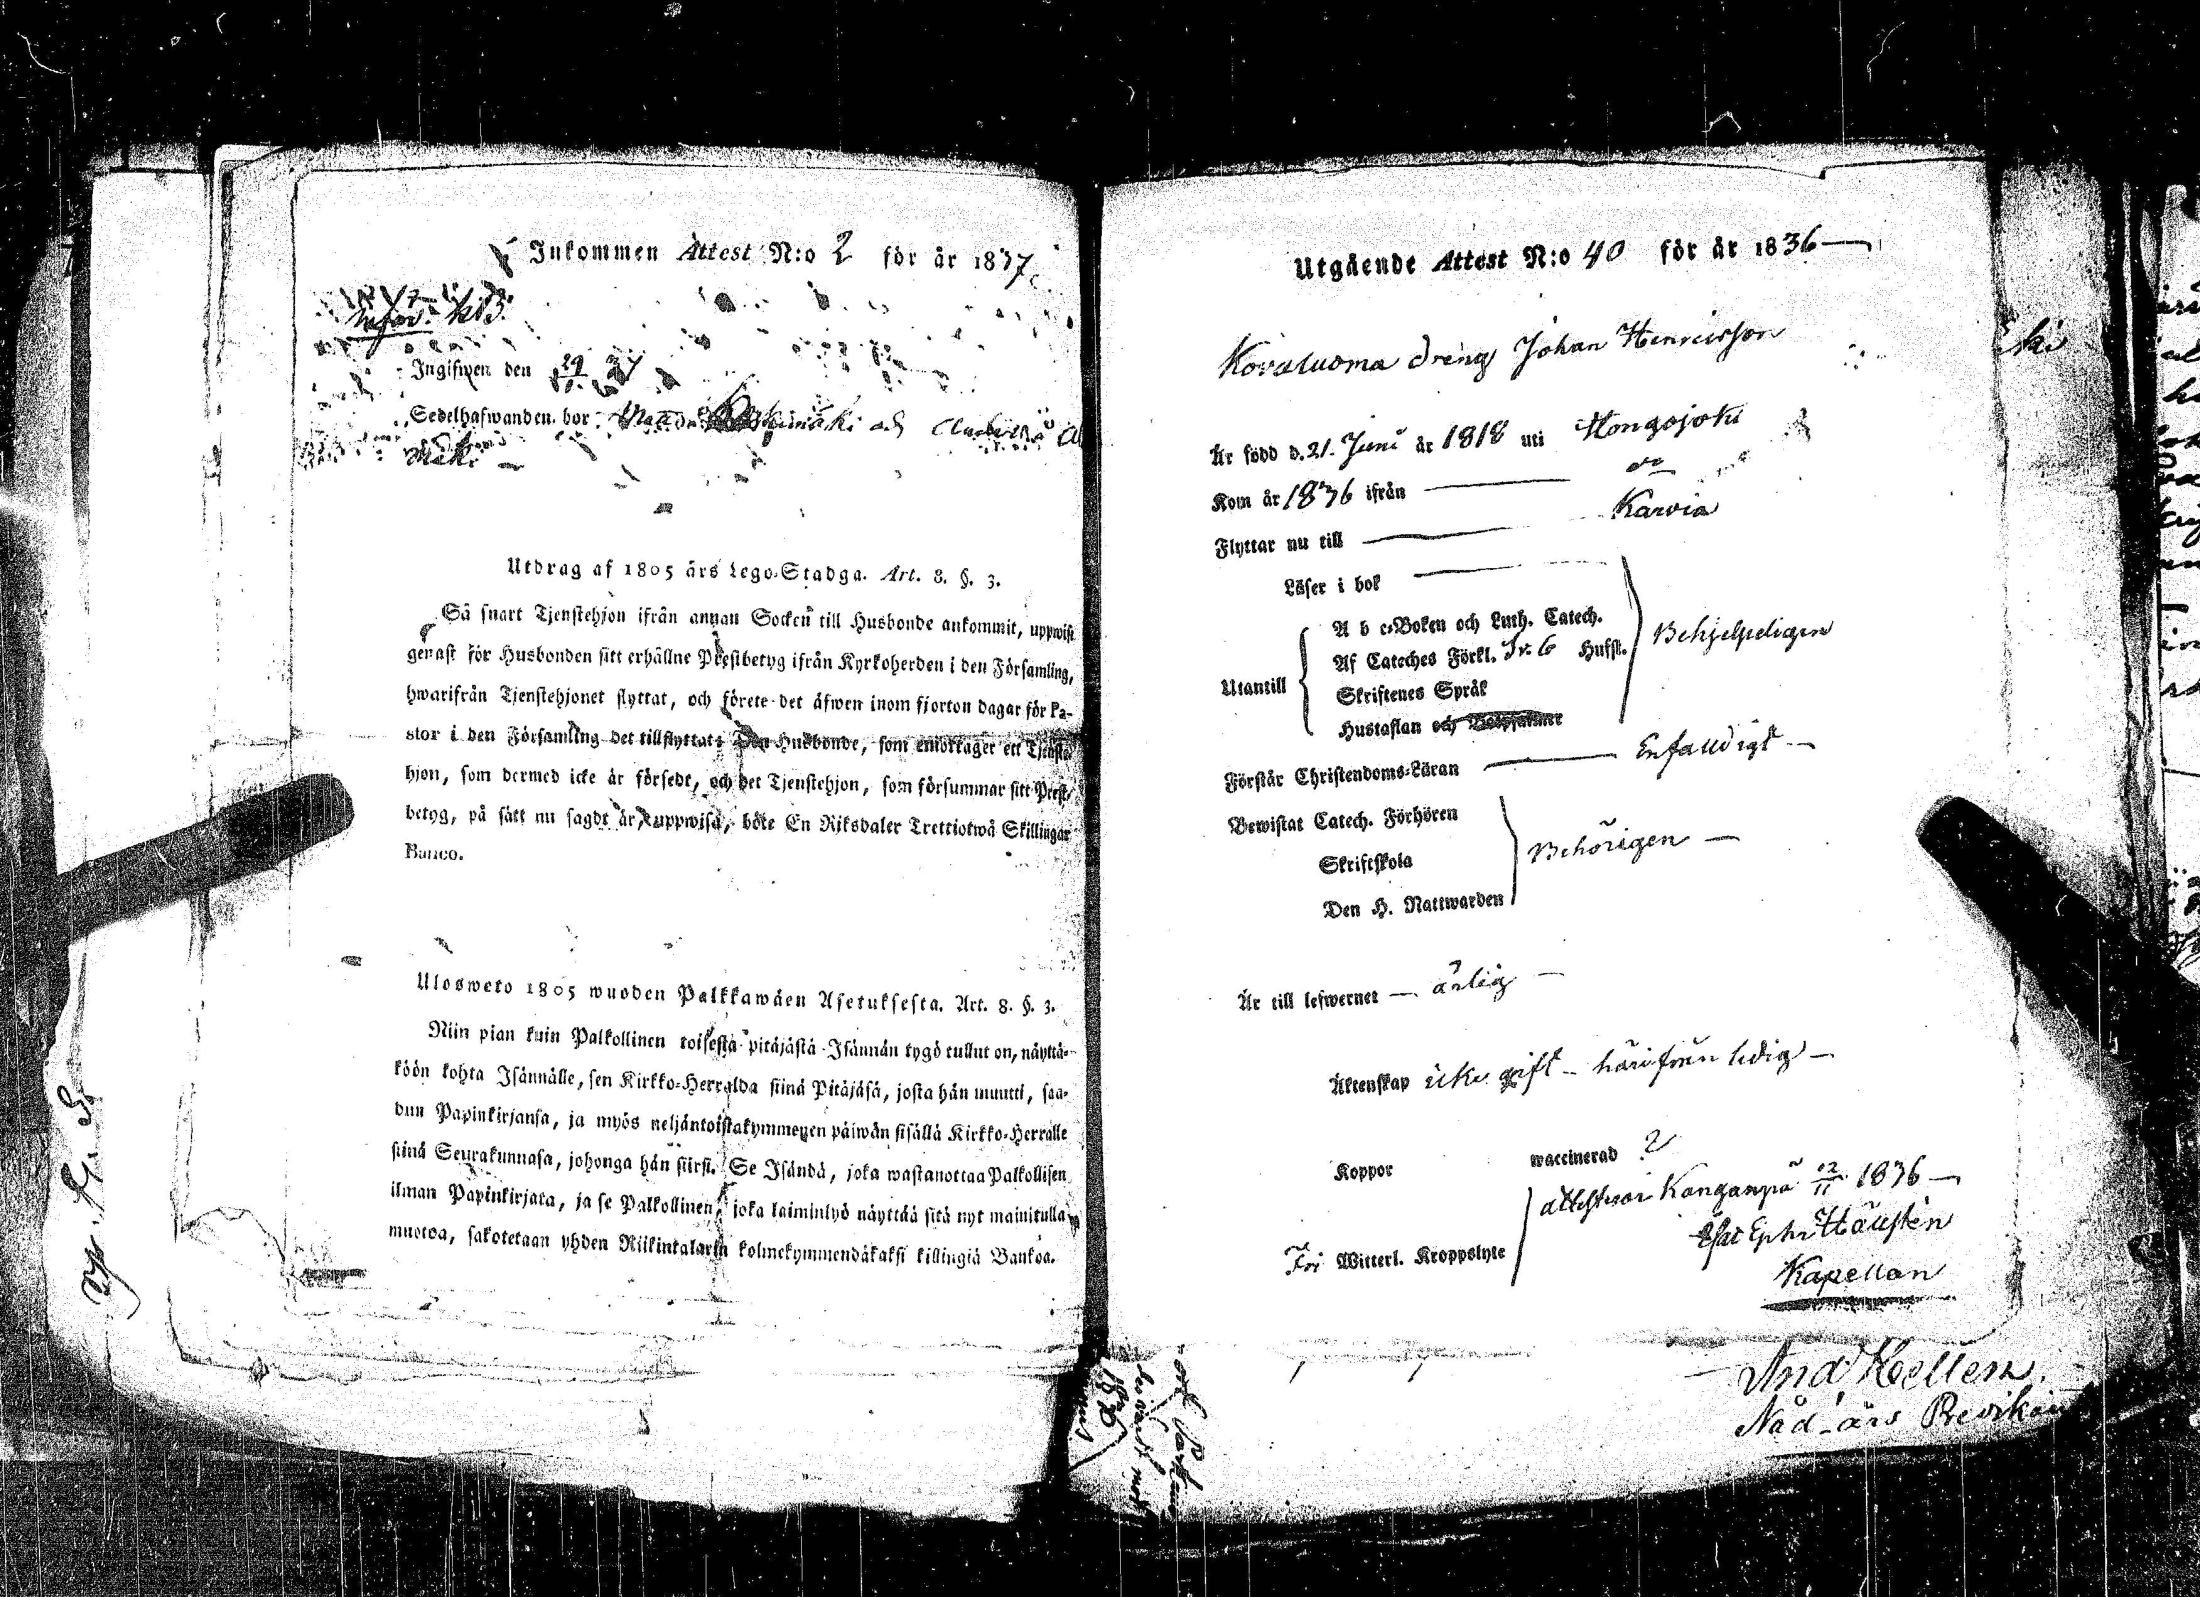 Inkommen Attest N:o 2 för år 1837
Ingifwen den 29
Sedelhafwanden bor
Mäki
Utdrag af 1805 års Lego-Stadga. Art. 8. §. 3.
Så snart Tjenstehjon ifrån annan Socken till Husbonde ankommit, uppwise
genast för Husbonden sitt erhållne Prestbetyg ifrån Kyrkoherden i den Församling,
hwarifrån Tjenstehjonet flyttat, och förete det äfwen inom fjorton dagar för Pa-
stor i den Församling det tillflyttat; Den Husbonde, som emottager ett Tjenste-
hjon, som dermed icke är försedt, och det Tjenstehjon, som försummar sitt Prest-
betyg, på sätt nu sagdt är, uppwisa, böte En Riksdaler Trettiotwå Skillingar
Banco.
Ulosweto 1805 wuoden Palkkawäen Asetuksesta. Art. 8. §. 3.
Niin pian kuin Palkollinen toisesta pitäjästä Isännän tygö tullut on, näyttä-
köön kohta Isännälle, sen Kirkko-Herralda siinä Pitäjäsä, josta hän muutti, saa-
dun Papinkirjansa, ja myös neljäntoistakymmenen päiwän sisällä Kirkko-Herralle
siinä Seurakunnasa, johonga hän siirsi. Se Isändä, joka wastanottaa Palkollisen
ilman Papinkirjata, ja se Palkollinen, joka laiminlyö näyttää sitä nyt mainitulla
muotoa, sakotetaan yhden Riikintalarin kolmekymmendäkaksi killingiä Bankoa.
Utgående Attest N:o 40 för år 1836
Kovaluoma dreng Johan Henricsson
Är född d. 21. Juni år 1818 uti Hongojoki
Kom år 1836 ifrån
Flyttar nu till Karvia
Läser i bok
Utantill
A b c-Boken och Luth. Catech.
Af Cateches Förkl. Sv. 6 Hufst.
Skriftenes Språk
Hustaflan och Botpsalmer
Behjelpeligen
Förstår Christendoms-Läran Enfaldigt
Bewistat Catech. Förhören
Skriftskola
Den H. Nattwarden
Behörigen
Är till lefwernet ärlig
Äktenskap icke gift - härifrån ledig
Koppor waccinerad ?
Fri Witterl. Kroppslyte
Kanganpä 12/11 1836
Kapellan
And Hellen
Nåd-års Predikant